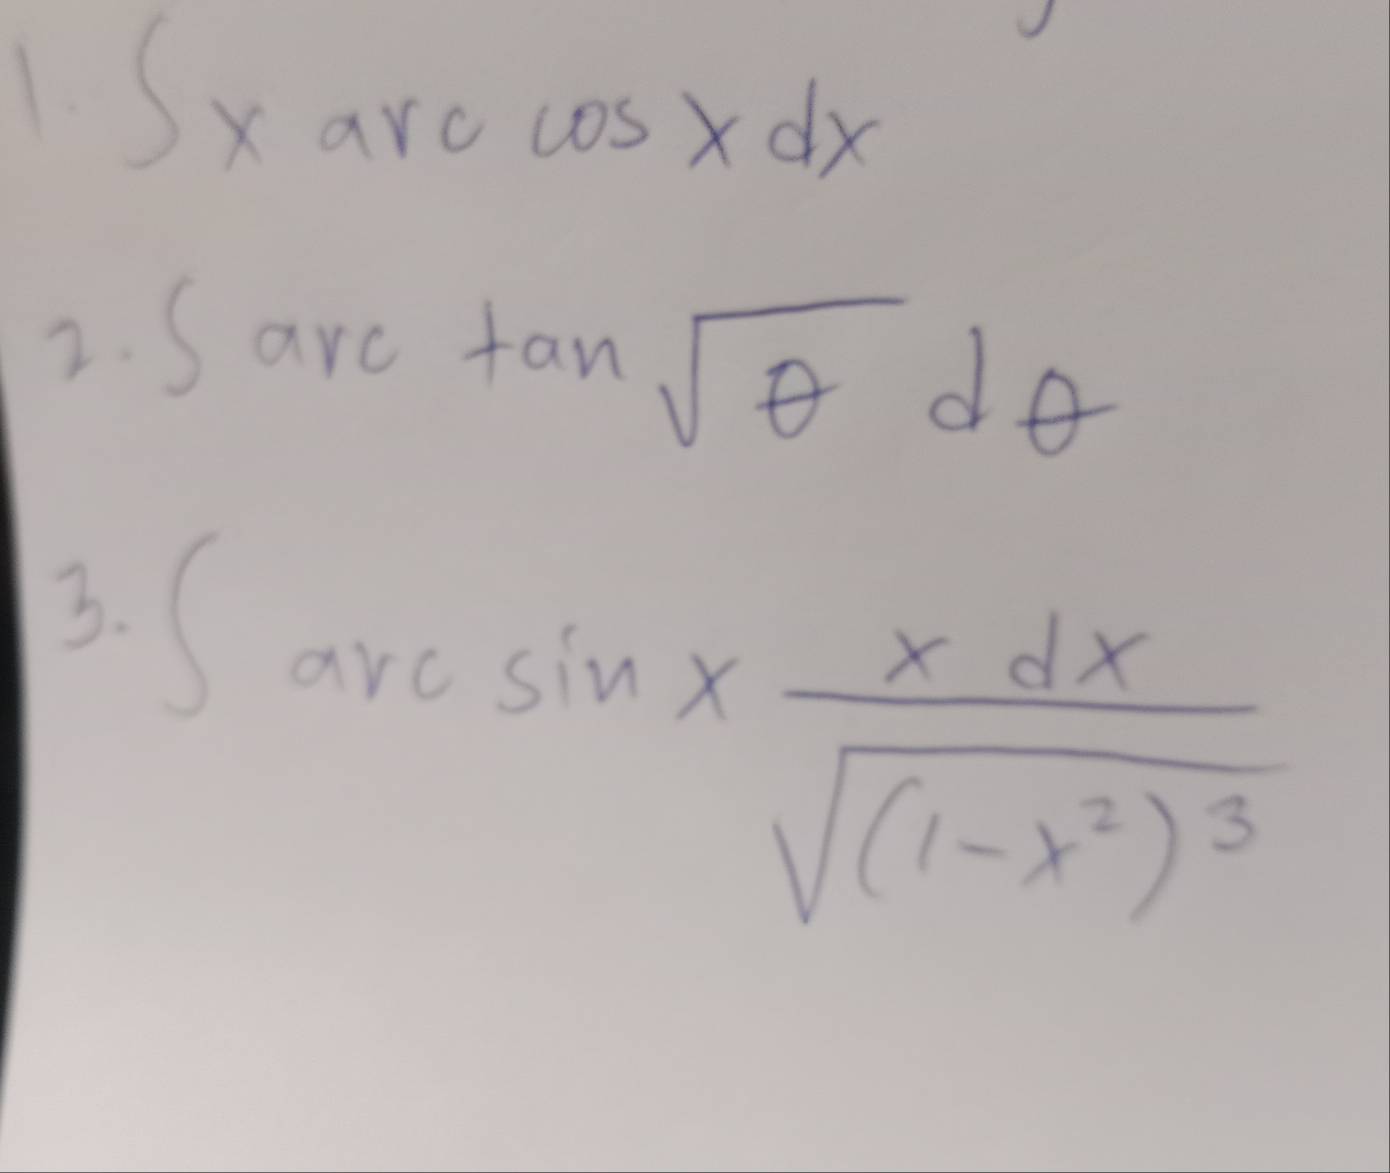 1. ∫ x arc cos x dx
2. ∫ arc tan √θ dθ
3. ∫ arc sin x x dx / √(1-x²)³